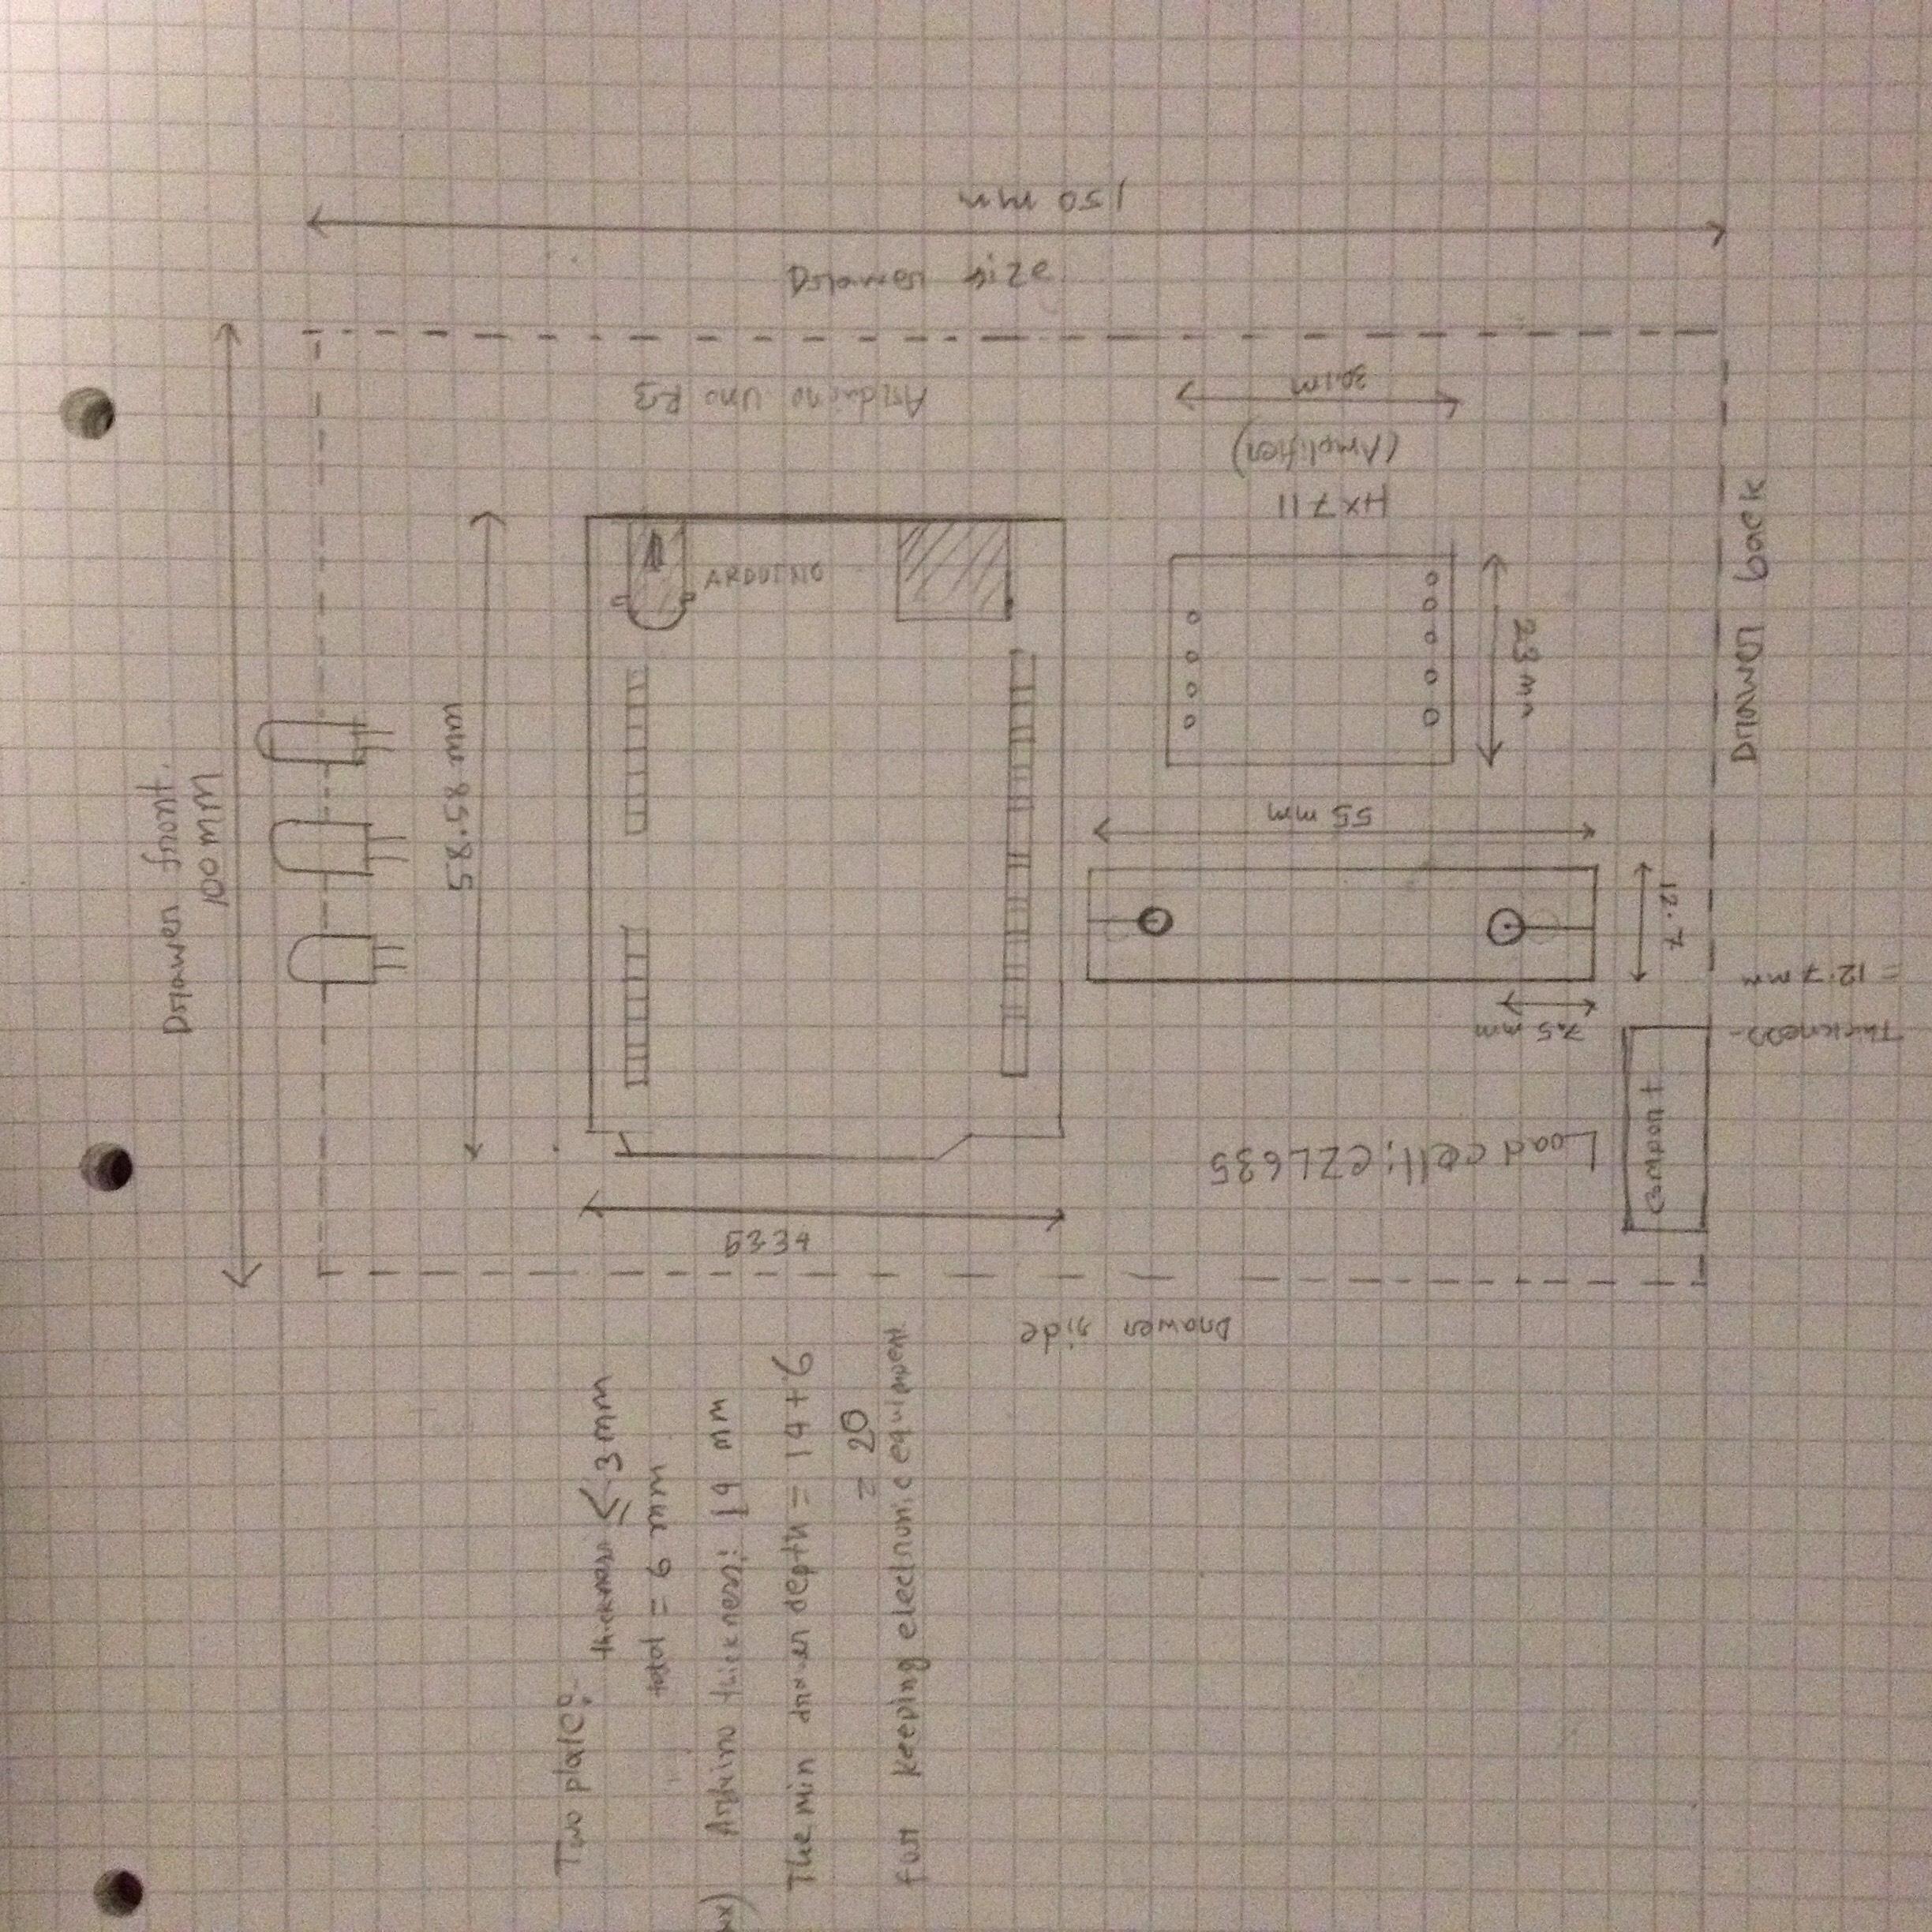 Drawer front.
100 mm
58.58 mm
Two plate:-
thickness ≤ 3 mm
total = 6 mm
Arduino thickness: 14 mm
The min drawer depth = 14+6
= 20
for keeping electronic equipment.
5334
ARDUINO
Arduino Uno R3
Drawer size
150 mm
Drawer side
Load cell; CZL635
55 mm
HX711
(Amplifier)
7.5 mm
12.7
Comport
Drawer back
Thickness-
= 12.7 mm